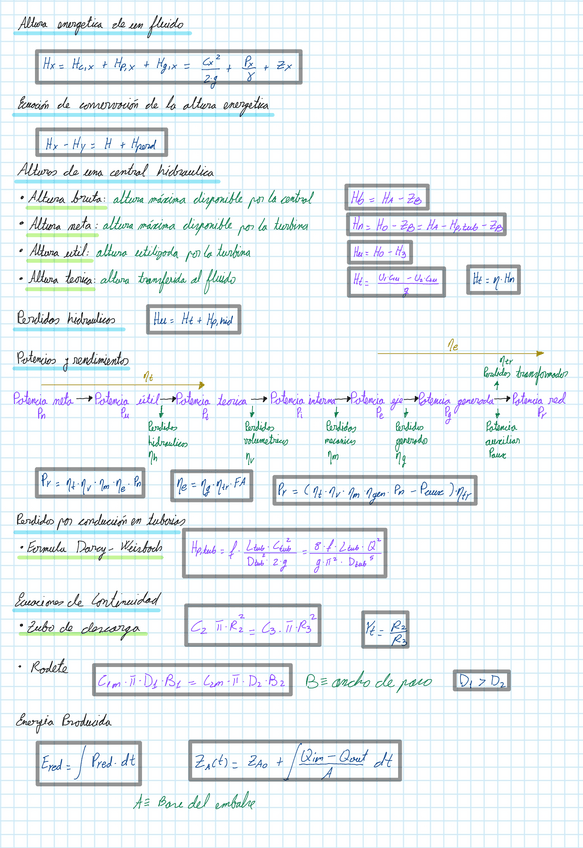 Altura energética de un fluido
Hx = Hc,x + Hp,x + Hg,x = Cx²/2g + Px/γ + Zx
Ecuación de conservación de la altura energética
Hx - Hy = H + Hperd
Alturas de una central hidraulica
• Altura bruta: altura máxima disponible por la central Hb = HA - ZB
• Altura neta: altura máxima disponible por la turbina Hn = H0 - ZB = HA - Hp,tub - ZB
• Altura útil: altura utilizada por la turbina Hu = H0 - H3
• Altura teorica: altura transferida al fluido Ht = (U1·C1u - U2·C2u)/g Ht = η·Hn
Perdidas hidraulicas Hu = Ht + Hp,hid
ηe
Potencias y rendimientos
ηtr
Perdidas transformador
ηt
Potencia neta → Potencia útil → Potencia teorica → Potencia interna → Potencia eje → Potencia generada → Potencia red
Pn Pu Pt Pi Pe Pg Pr
Perdidas hidraulicas ηh
Perdidas volumetricas ηv
Perdidas mecanicas ηm
Perdidas generador ηg
Potencia auxiliar Paux
Pr = ηt·ηv·ηm·ηe·Pn ηe = ηg·ηtr·FA Pr = (ηt·ηv·ηm·ηgen·Pn - Paux)ηtr
Perdidas por conducción en tuberias
• Formula Darcy-Weisbach Hp,tub = f·Ltub·Ctub²/Dtub²·2·g = 8·f·Ltub·Q²/g·π²·Dtub⁵
Ecuaciones de Continuidad
• Tubo de descarga C2·π·R2² = C3·π·R3² Yt = R2/R3
• Rodete C1m·π·D1·B1 = C2m·π·D2·B2 B ≡ ancho de paso D1 > D2
Energia Producida
Ered = ∫ Pred·dt ZA(t) = ZA0 + ∫ (Qin - Qout)/A dt
A ≡ Base del embalse